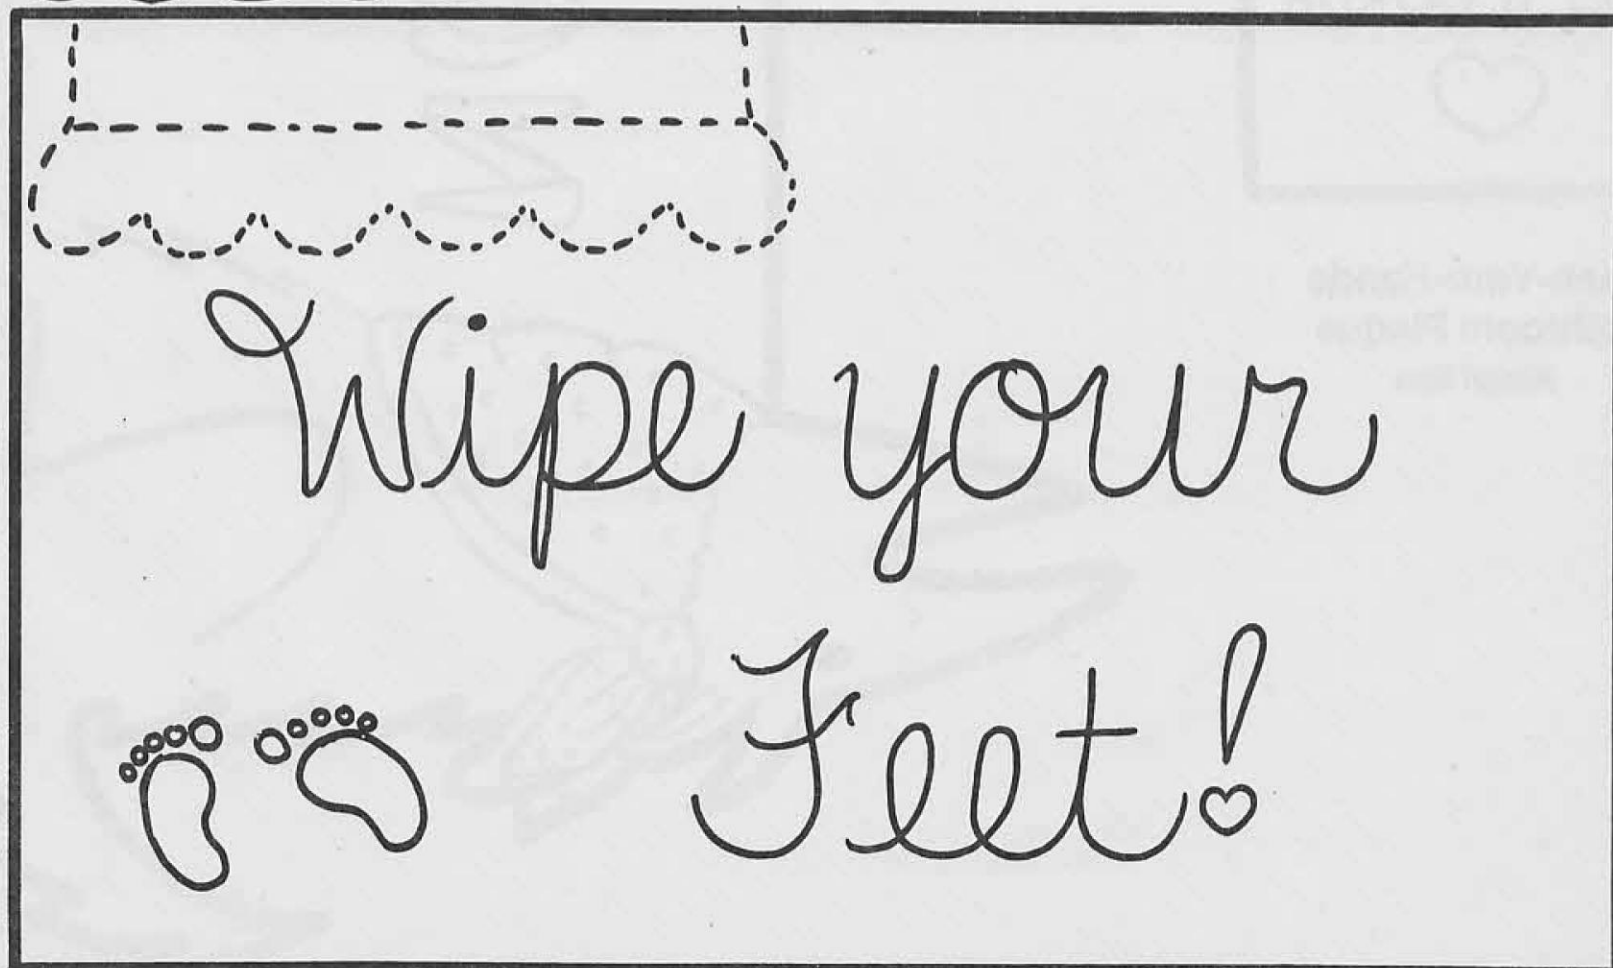 Wipe your
Feet!